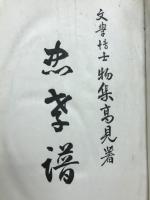 文學博士 物集高見著
忠孝譜